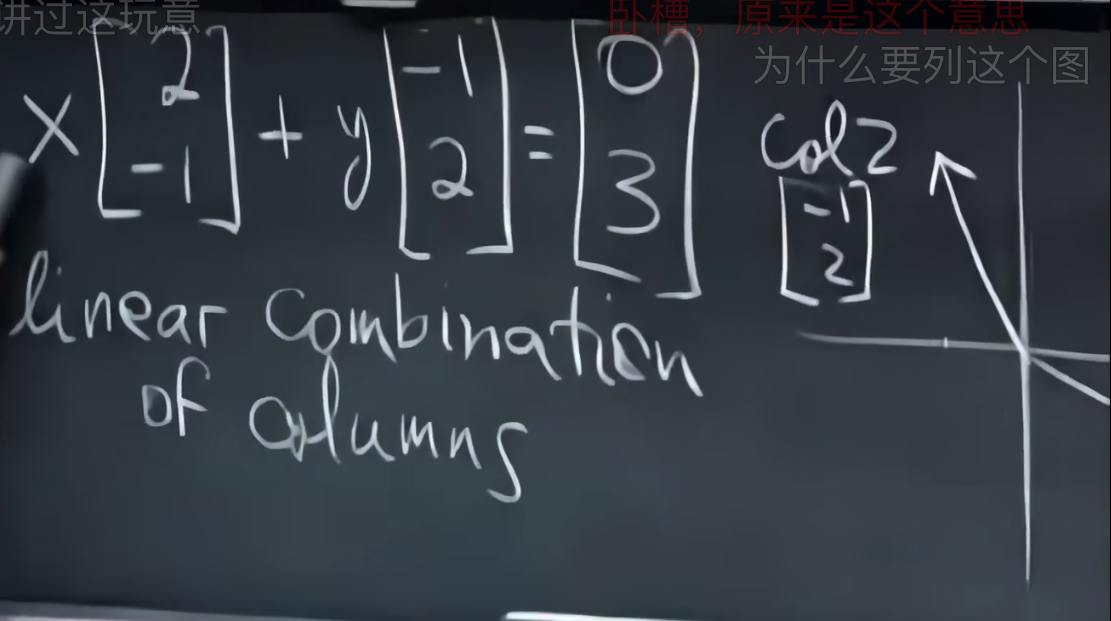 讲过这玩意
卧槽，原来是这个意思
为什么要列这个图
x [2 -1] + y [-1 2] = [0 3]
linear combination
of columns
col 2
[-1 2]